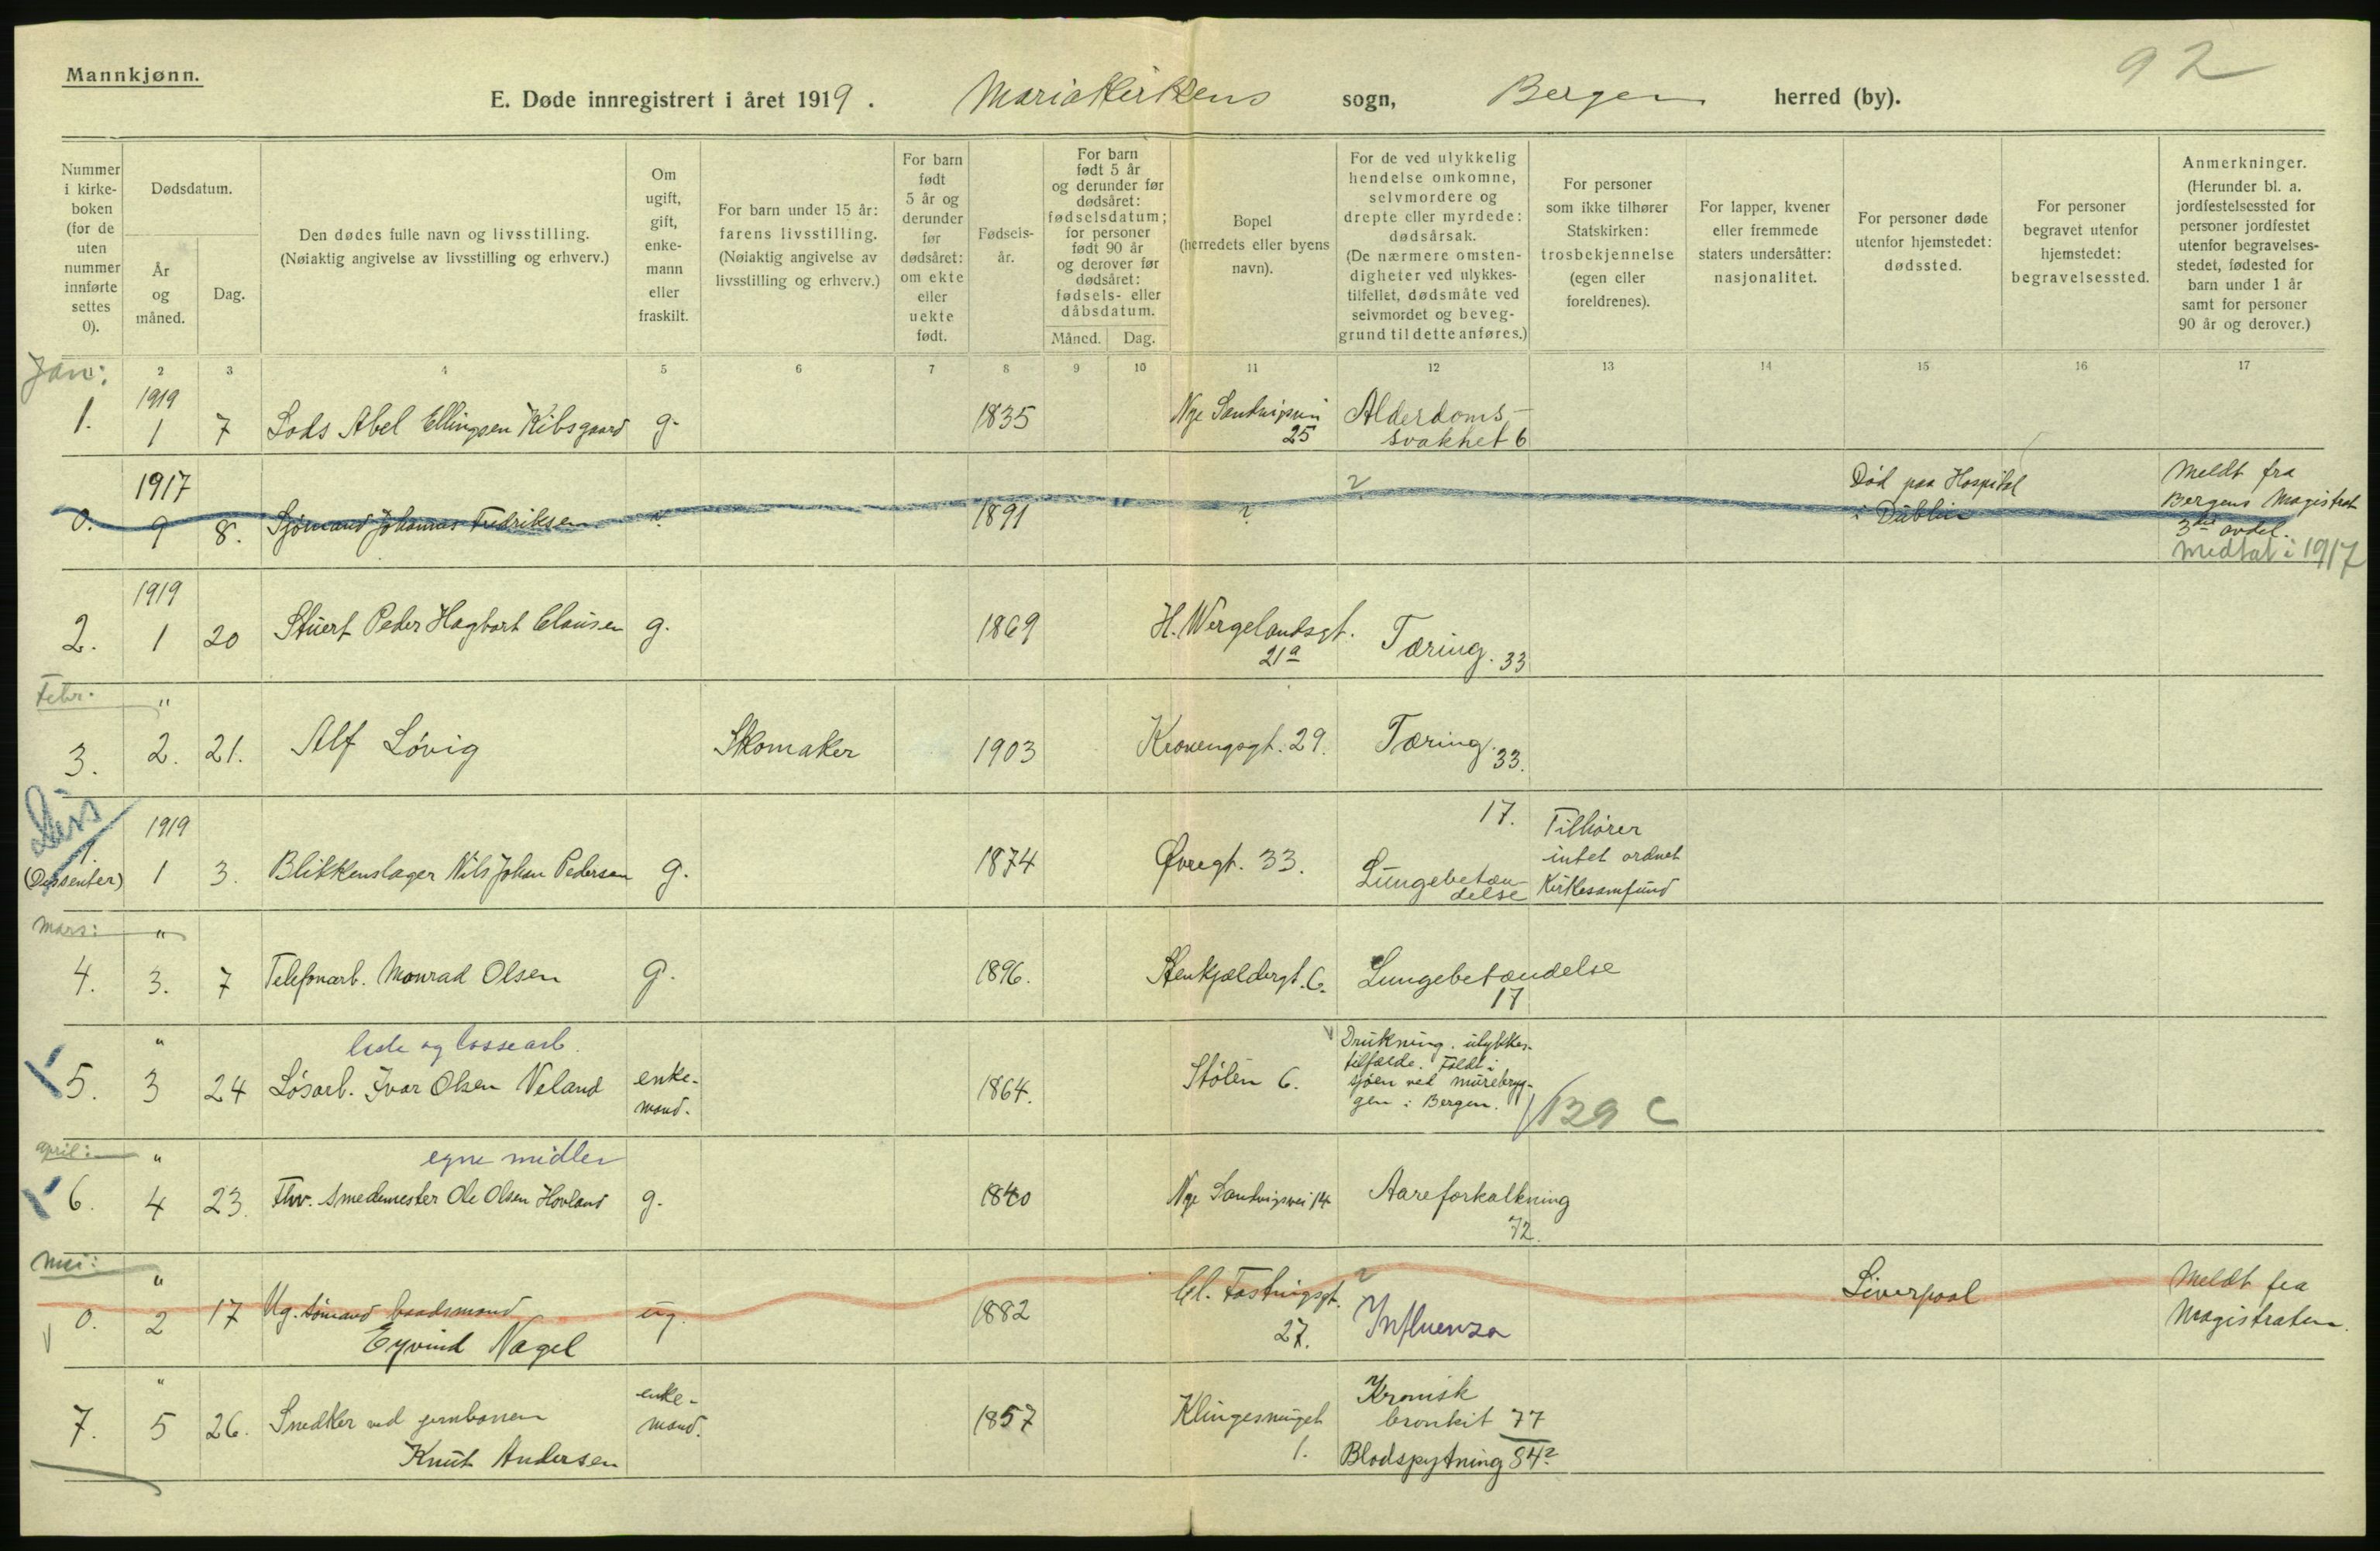 92
Mannkjønn.
E. Døde innregistrert i året 1919. Mariakirkens sogn, Bergen herred (by).
Nummer i kirke-boken (for de uten nummer innførte settes 0).
Dødsdatum.
År og måned.
Dag.
Den dødes fulle navn og livsstilling. (Nøiaktig angivelse av livsstilling og erhverv.)
Om ugift, gift, enke-mann eller fraskilt.
For barn under 15 år: farens livsstilling. (Nøiaktig angivelse av livsstilling og erhverv.)
For barn født 5 år og derunder før dødsåret: om ekte eller uekte født.
Fødsels-år.
For barn født 5 år og derunder før dødsåret: fødselsdatum; for personer født 90 år og derover før dødsåret: fødsels- eller dåbsdatum.
Måned. Dag.
Bopel (herredets eller byens navn).
For de ved ulykkelig hendelse omkomne, selvmordere og drepte eller myrdede: dødsårsak. (De nærmere omsten-digheter ved ulykkes-tilfellet, dødsmåte ved selvmordet og beveg-grund til dette anføres.)
For personer som ikke tilhører Statskirken: trosbekjennelse (egen eller foreldrenes).
For lapper, kvener eller fremmede staters undersåtter: nasjonalitet.
For personer døde utenfor hjemstedet: dødssted.
For personer begravet utenfor hjemstedet: begravelsessted.
Anmerkninger. (Herunder bl. a. jordfestelsessted for personer jordfestet utenfor begravelses-stedet, fødested for barn under 1 år samt for personer 90 år og derover.)
Jan:
2 3 4 5 6 7 8 9 10 11 12 13 14 15 16 17
1919
1. 1 7 Lods Abel Ellingsen Kibsgaard g. 1835 Nye Sandvigsvei 25 Alderdoms-svakhet 6
1917
0. 9 8. Sjømand Johannes Fredriksen ? 1891 ? ? Død paa Hospital i Dublin Meldt fra Bergens Magistrat 3die avdel.
medtat i 1917
1919
2. 1 20 Stuert Peder Hagbart Clausen g. 1869 H. Wergelandsgt. 21a Tæring. 33
Febr.
"
3. 2. 21. Alf Løvig Skomaker 1903 Kronengsgt. 29. Tæring. 33.
Diss
1919
1. (Dissenter) 1 3. Blikkenslager Nils Johan Pedersen g. 1874 Øvregt. 33. 17. Lungebetæn-delse Tilhører intet ordnet Kirkesamfund
Mars:
"
4. 3. 7 Telefonarb. Monrad Olsen g. 1896. Stenkjeldergt. 6. Lungebetændelse 17
"
laste og lossearb.
5. 3 24 Løsarb. Ivar Olsen Veland enke-mand. 1864. Stølen 6. Drukning. ulykkes-tilfælde. Faldt i sjøen ved murebryg-gen i Bergen. 129 C
april:
"
egne midler
6. 4 23. Fhv. Smedemester Ole Olsen Hovland g. 1840 Nye Sandvigsvei 14 Aareforkalkning 72.
mai:
"
0. 2 17 Ug. sømand baadsmand Eyvind Nagel ug. 1882 Cl. Fastingsgt. 27. ? Influenza Liverpool Meldt fra Magistraten.
"
7. 5 26. Snedker ved jernbanen Knut Andersen enke-mand. 1857 Klingesmuget 1. Kronisk bronkit 77 Blodspytning 84?